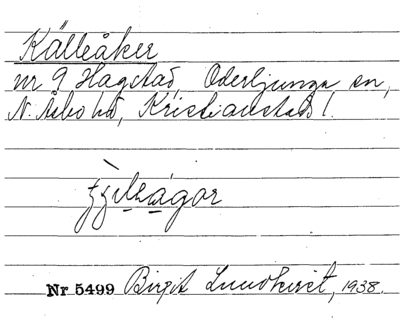 Källeåker
nr 9 Hagstad, Oderljunga sn,
N. Åsbo hd, Kristianstads l.
Nr 5499 Birgit Lundkvist, 1938.